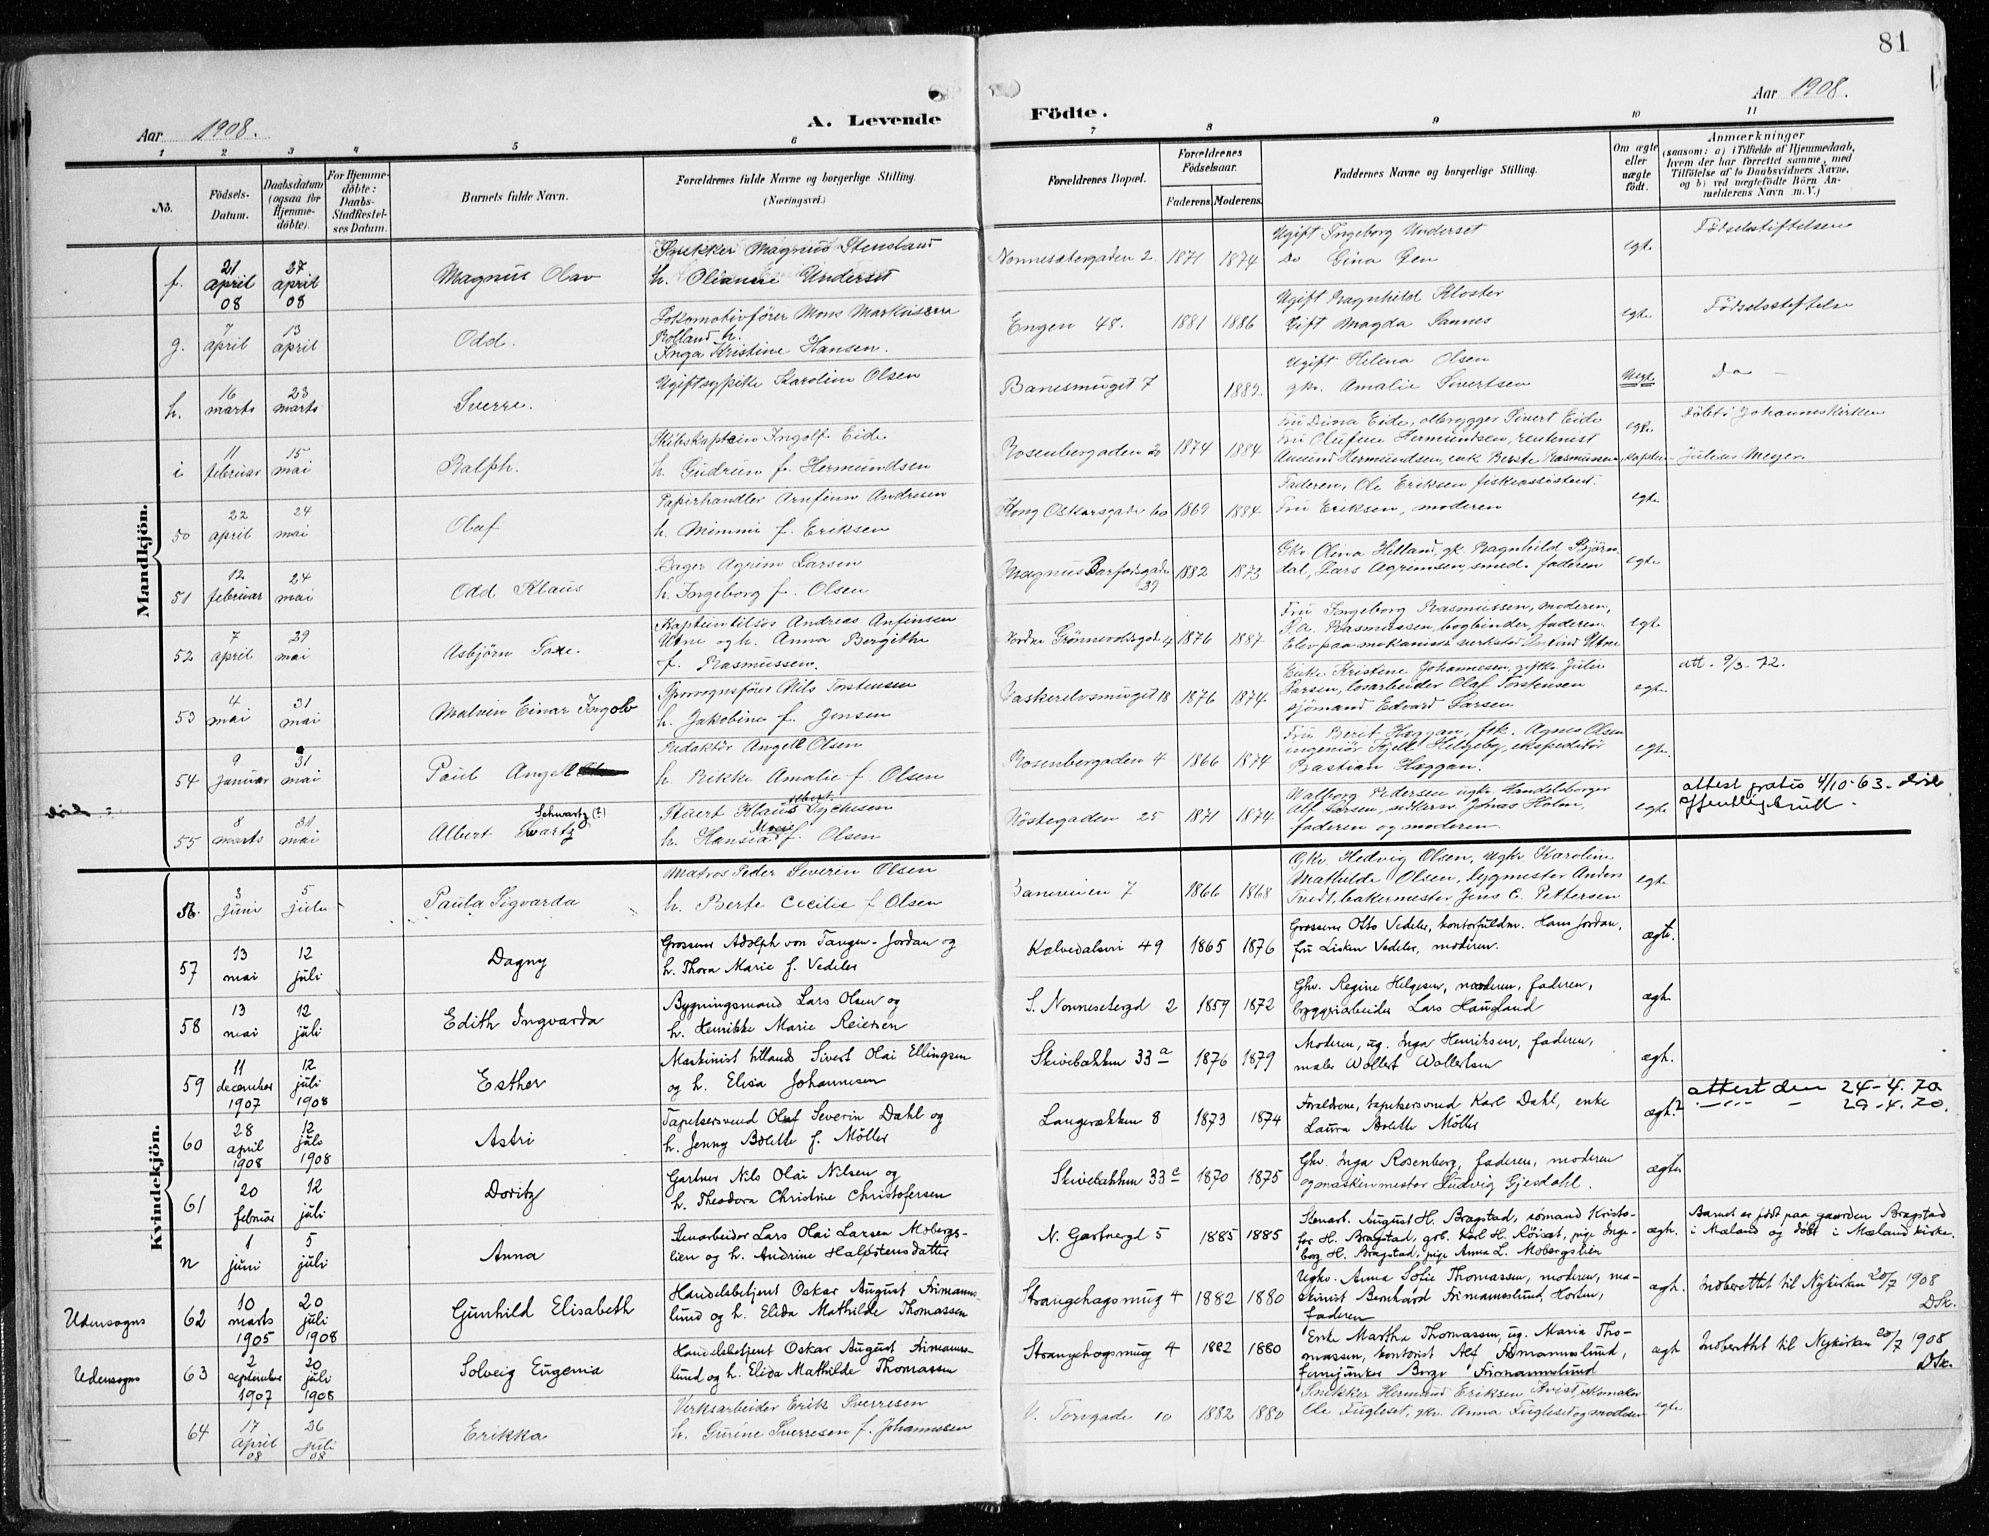 81
Aar 1908.
A. Levende Födte.
Aar 1908.
1 2 3 4 5 6 7 8 9 10 11
No.
Födsels-
Datum.
Daabsdatum
(ogsaa for
Hjemme-
döbte).
For Hjemme-
döbte:
Daabs-
Stadfæstel-
ses Datum.
Barnets fulde Navn.
Forældrenes fulde Navne og borgerlige Stilling.
(Næringsvei.)
Forældrenes Bopæl.
Forældrenes
Födselsaar.
Faderens. Moderens.
Faddernes Navne og borgerlige Stilling.
Om ægte
eller
uægte
födt.
Anmærkninger
(saasom: a) i Tilfælde af Hjemmedaab,
hvem der har forrettet samme, med
Tilföielse af to Daabsvidners Navne,
og b) ved uægtefödte Börn An-
melderens Navn m. V.)
Mandkjön.
f. 21 april 08 27 april 08 Magnus Olav
Snekker Magnus Stensland
h. Oliane Underset
Nonnesætergaden 2 1871 1874
Ugift Ingeborg Underset
do Gina Øen
egte
Fødselsstiftelsen
g. 7 april 13 april Odd.
Lokomotivfører Mons Markusen
Rolland h.
Inga Kristine Hansen.
Engen 48. 1881 1886
Ugift Ragnhild Kloster
Gift Magda Sannes
egte
Fødselsstiftelse
h. 16 marts 23 marts Sverre.
Ugift sypike Karoline Olsen
Banesmuget 7 1882.
Ugift Helena Olsen
gkv. Amalie Sivertsen
Uegt.
Do —
i 11 februar 15 mai Ralph.
Skibskaptein Ingolf Eide
h. Gudrun f. Hermundsen
Rosenbergaden 20 1874 1884
Fru Dina Eide, ølbrygger Sivert Eide
fru Olufine Hermundsen, rentenist
Amund Hermundsen, enk. Berte Rasmussen,
egte
Døbt i Johanneskirken
Julius Meyer.
50 22 april 24 mai Olaf
Papirhandler Arnfinn Andresen
h. Mimmi f. Eriksen
Kong Oskarsgade 60 1869 1884
Faderen, Ole Eriksen fiskeassistent.
Fru Eriksen, moderen
egte
51 12 februar 24 mai Odd Klaus
Bager Agrim Larsen
h. Ingeborg f. Olsen
Magnus Barfodsgade 39 1882 1873
Gkv Olina Hilland, gk. Ragnhild Bjørn-
dal, Lars Agrimsen, smed. faderen
egte
52 7 april 29 mai Asbjørn Saxe.
Kaptein tilsøs Andreas Anfinsen
Utne og h. Anna Bergithe
f. Rasmussen.
Nordre Grønnevoldsgade 4 1876 1887.
Fru Ingeborg Rasmussen, moderen,
R. a. Rasmussen, bogbinder, faderen.
Elev paa mekanisk verksted Øivind Utne
egte
53 4 mai 31 mai Malvin Einar Ingolv
Sporvognsfører Nils Torstensen
h. Jakobine f. Jensen
Vaskerelvsmuget 18 1876 1874
Enke Kristine Johannesen, giftk. Julie
Larsen, løsarbeider Olaf Torstensen
sjømand Edvard Larsen
egte
att. 9/3. 72.
54 9 januar 31 mai Paul Angell
Redaktør Angell Olsen
h. Rikke Amalie f. Olsen
Rosenbergaden 4 1866 1874
Fru Berit Hæggan, frk. Agnes Olsen
ingeniør Kjell Helgeby, ekspeditør
Bastian Hæggan.
egte
55 8 marts 31 mai Albert Swartz Schwartz (?)
Stuert Klaus Albert Dychesen
h. Hansia Marie f. Olsen
Nøstegaden 25 1871 1874
Valborg Pedersen ugkv Handelsborger
Alf Larsen, sedkerer Johas Holm,
faderen og moderen.
egte
attest gratis 4/10-63.
offentlig bruk.
Kvindekjön.
56. 3 juni 5 juli Paula Sigvarda
Matros Peder Severin Olsen
h. Berte Cecilie f. Olsen
Baneveien 7 1866 1868
Gkv. Hedvig Olsen, Ugkv Karoline
Mathilde Olsen, bygmester Anders
Tvedt, bakermester Jens C. Pettersen
egte
57 13 mai 12 juli Dagny
Grosserer Adolph von Tangen-Jordan og
h. Thora Marie f. Vedeler
Kalvedalsvei 49 1865 1876
Grosserer Otto Vedeler, kontorfuldm. Hans Jordan,
fru Lisken Vedeler, moderen.
ægte.
58 13 mai 12 juli Edith Ingvarda
Bygningsmand Lars Olsen og
h. Henrikke Marie Reiersen
S. Nonnesetergd 2 1859 1872
Ghv. Regine Helgesen, moderen, faderen,
bryggeriarbeider Lars Haugland
ægt.
59 11 december 1907 12 juli 1908 Esther
Maskinist tillands Sivert Olai Ellingsen
og h. Elisa Johannesen
Skivebakken 33 a 1876 1879
Moderen, ug. Inga Henriksen, faderen,
maler Wollert Wollertsen
ægt.
60 28 april 1908 12 juli 1908 Astri
Tapetsersvend Olaf Severin Dahl og
h. Jenny Bolette f. Møller
Langerækken 8 1873 1874
Forældrene, tapetsersvend Karl Dahl, enke
Laura Bolette Møller
ægt.
attest den 24-4.70
— " — 29-4.70.
61 20 februar 12 juli Doritz
Gartner Nils Olai Nilsen og
h. Theodora Christine Christofersen
Skivebakken 33 c 1870 1875
Ghv. Inga Rosenberg, faderen, moderen
og maskinmester Ludvig Gjesdahl.
ægte
n 1 juni 5 juli Anna
Stenarbeider Lars Olai Larsen Mobergs-
lien og h. Andrine Halfstensdatter
N. Gartnergt 5 1885 1885
Stenarb. August H. Bragstad, sømand Kristo-
fer H. Bragstad, grb. Karl H. Røiset, pige Inge-
borg H. Bragstad, pige Anna L. Mobergslien
ægt.
Barnet er født paa gaarden Bragstad
i Mæland og døbt i Mæland kirke.
Udensogns 62 10 marts 1905 20 juli 1908 Gunhild Elisabeth
Handelsbetjent Oskar August Firmanns-
lund og h. Elida Mathilde Thomassen
Strangehagsmug 4 1882 1880
Ugkv. Anna Sofie Thomassen, moderen, ma-
skinist Bernhard Firmannslund Horten,
faderen
ægt.
Indberettet til Nykirken 20/7 1908
DSk.
Udensogns 63 2 september 1907 20 juli 1908 Solveig Eugenia
Handelsbetjent Oskar August Firmanns-
lund og h. Elida Mathilde Thomassen
Strangehagsmug 4 1882 1880
Enke Martha Thomassen, ug. Maria Tho-
massen, kontorist Alf Firmannslund,
fenrjunker Borge Firmannslund
ægt
Indberettet til Nykirken 20/7 1908
DSk.
64 17 April 08 26 juli 08 Erikka
Verksarbeider Erik Sverresen
h. Gurine Sverresen f. Johannessen
V. Torvgade 10 1882 1880
Snikker Hermund Eriksen Kvist, skomaker
Ole Fugleset, gkv. Anna Fugleset og moderen
egte